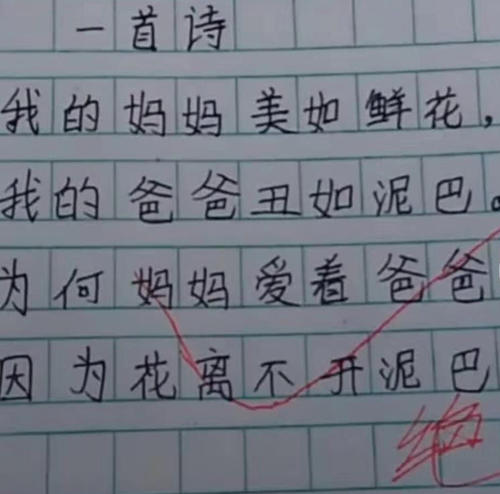 一首诗
我的妈妈美如鲜花，
我的爸爸丑如泥巴。
为何妈妈爱着爸爸
因为花离不开泥巴
绝